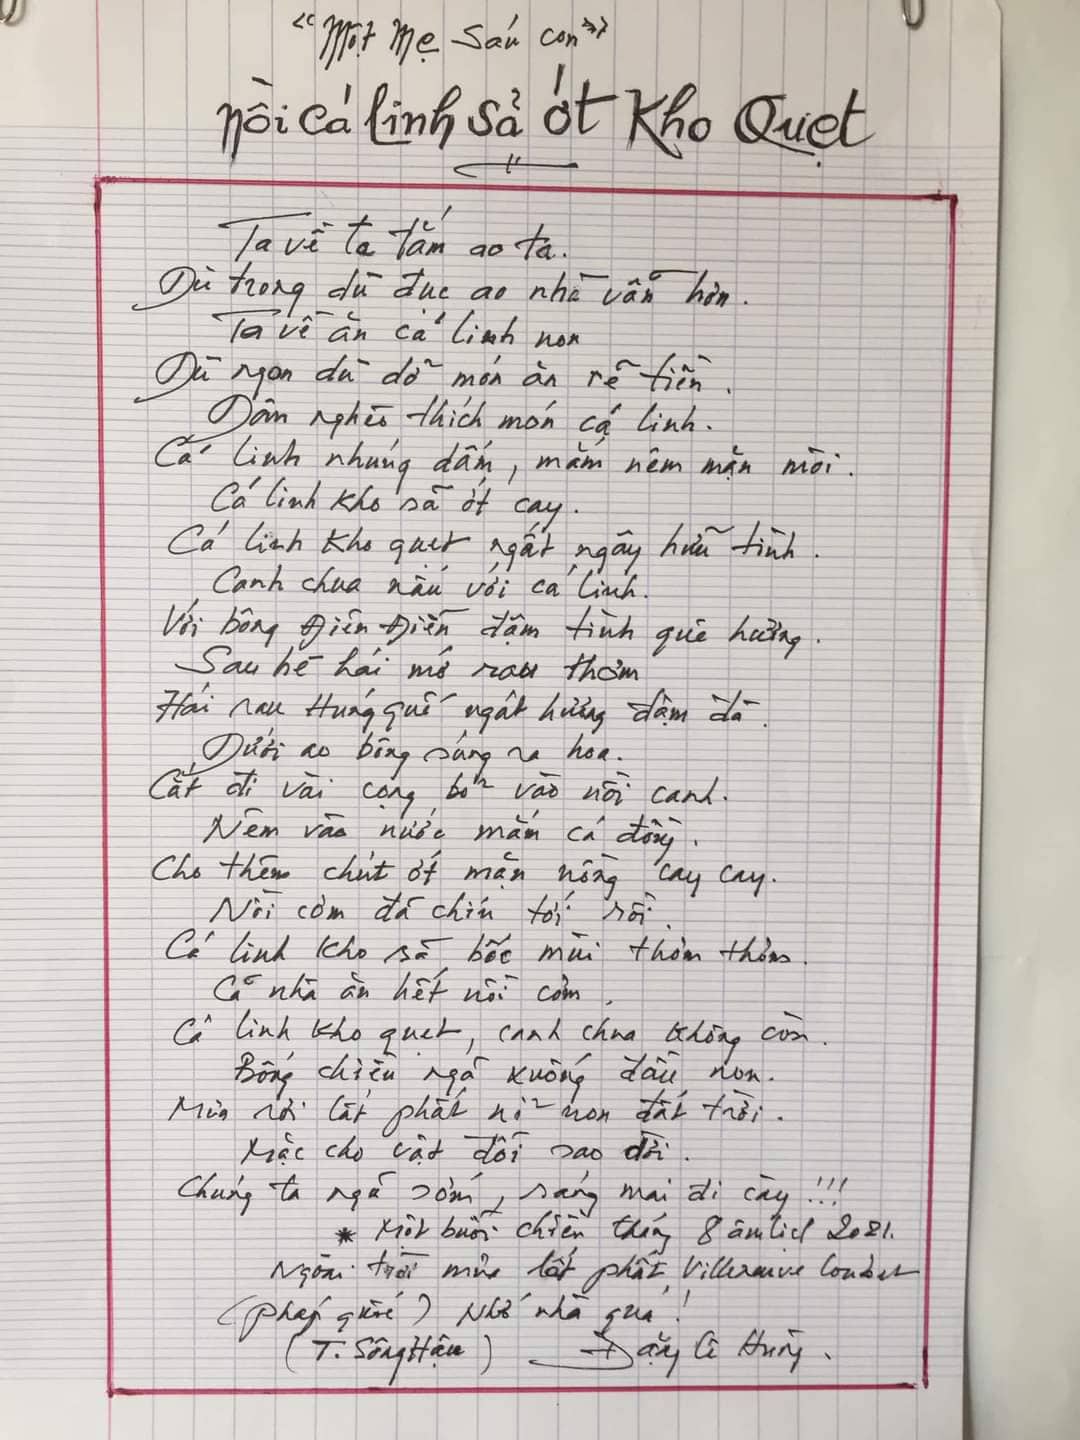 "Một Mẹ Sáu con"
Nồi cá linh sả ớt Kho Quẹt
Ta về ta tắm ao ta.
Dù trong dù đục ao nhà vẫn hơn.
Ta về ăn cá linh non
Dù ngon dù dở món ăn rẻ tiền.
Dân nghèo thích món cá linh.
Cá linh nhúng dấm, mắm nêm mặn mòi.
Cá linh kho sả ớt cay.
Cá linh kho quẹt ngất ngây hữu tình.
Canh chua nấu với cá linh.
Với bông Điên Điển đậm tình quê hương.
Sau hè hái mớ rau thơm
Hái rau Húng quế ngát hương đậm đà.
Dưới ao bông súng ra hoa.
Cắt đi vài cọng bỏ vào nồi canh.
Nêm vào nước mắm cá đồng.
Cho thêm chút ớt mặn nồng cay cay.
Nồi cơm đã chín tới rồi.
Cá linh kho sả bốc mùi thơm thơm.
Cả nhà ăn hết nồi cơm.
Cá linh kho quẹt, canh chua không còn.
Bóng chiều ngả xuống đầu non.
Mưa rơi lất phất nỉ non đất trời.
Mặc cho vật đổi sao dời.
Chúng ta ngả sớm, sáng mai đi cày !!!
* Một buổi chiều tháng 8 âm lịch 2021.
Ngoài trời mưa lất phất Villeneuve Loubet
(Pháp quốc) Nhớ nhà quá !
(T. Sông Hậu) Đặng Lê Hùng.